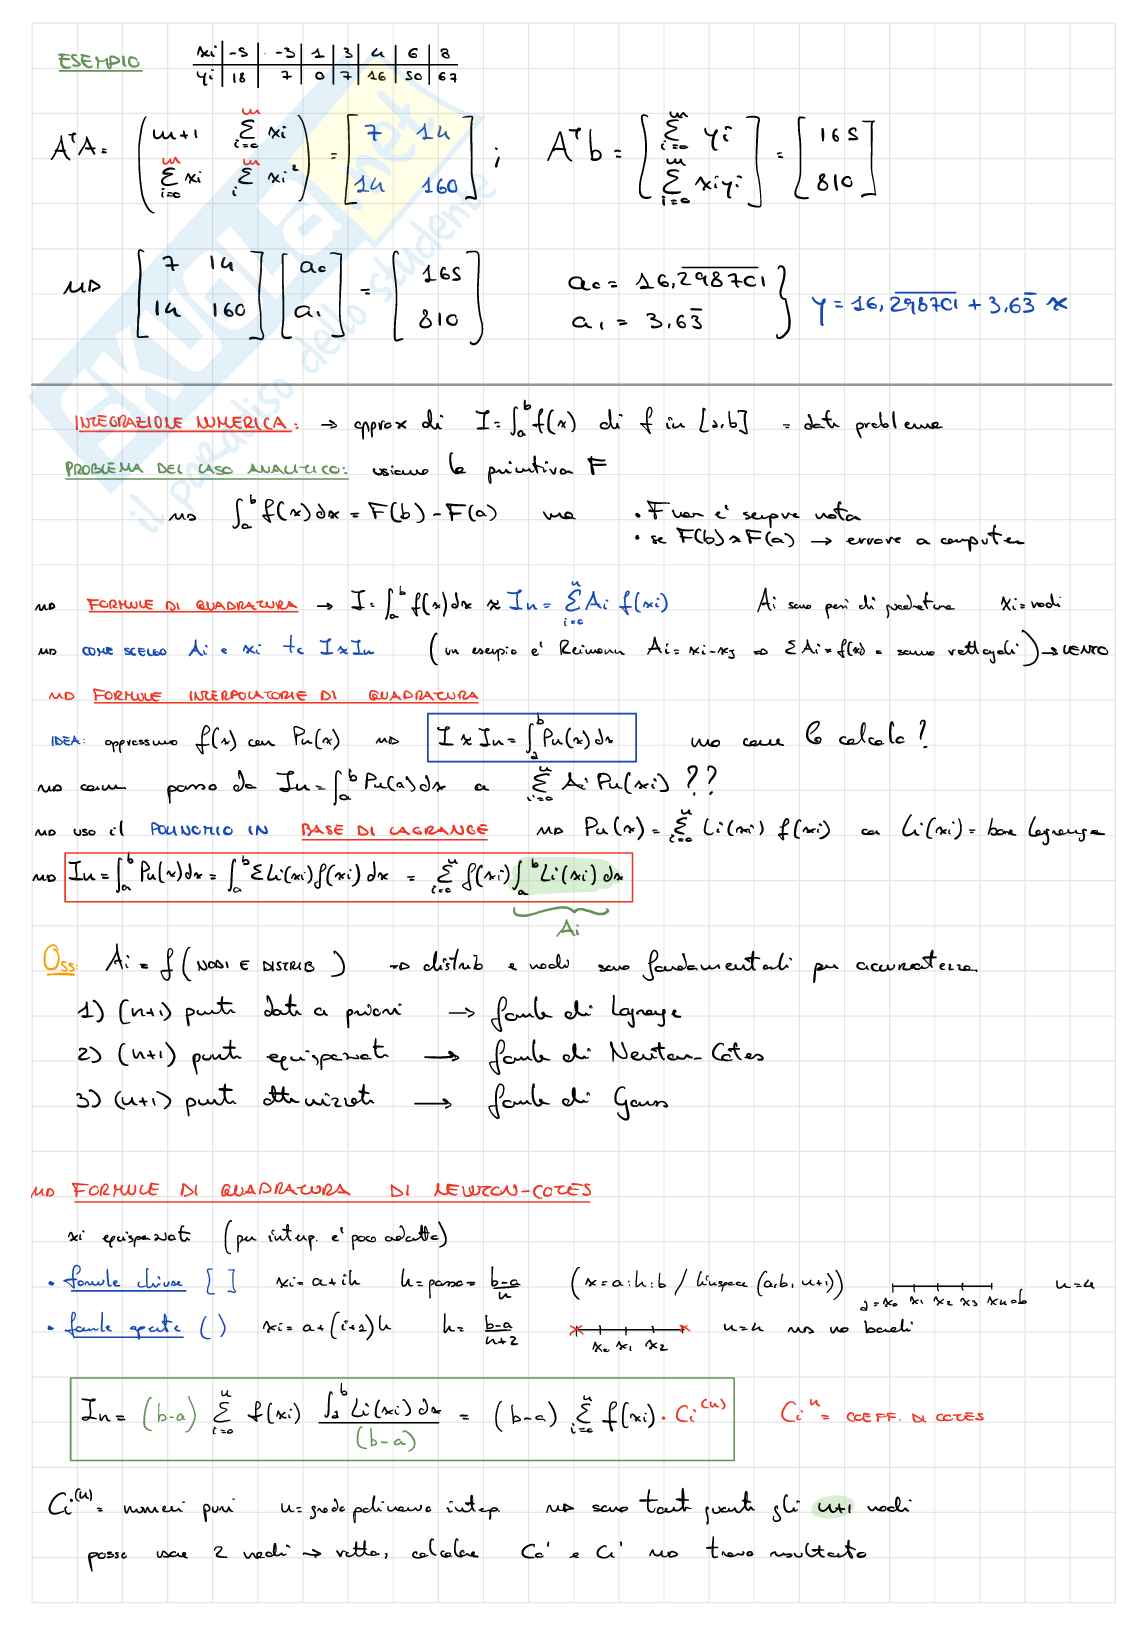 ESEMPIO
xi | -5 | -3 | 1 | 3 | 4 | 6 | 8
yi | 18 | 7 | 0 | 7 | 16 | 50 | 67
AᵀA = ( m+1 Σ_{i=0}^{m} xi ; Σ_{i=0}^{m} xi Σ_{i}^{m} xi² ) = [ 7 14 ; 14 160 ] ; Aᵀb = [ Σ_{i=0}^{m} yi ; Σ_{i=0}^{m} xiyi ] = [ 165 ; 810 ]
[ 7 14 ; 14 160 ] [ a0 ; a1 ] = [ 165 ; 810 ] a0 = 16,298701 a1 = 3,63 } y = 16,298701 + 3,63 x
INTEGRAZIONE NUMERICA: → approx di I = ∫_a^b f(x) di f in [a,b] = dati problema
PROBLEMA DEL CASO ANALITICO: usiamo la primitiva F
∫_a^b f(x) dx = F(b) - F(a) ma • F non è sempre nota
• se F(b) ≈ F(a) → errore a computer
FORMULE DI QUADRATURA → I = ∫_a^b f(x) dx ≈ In = Σ_{i=0}^{n} Ai f(xi) Ai sono pesi di quadratura xi = nodi
COME SCELGO Ai e xi tc I ≈ In (un esempio è Reimann Ai = xi-xj => ΣAi = f(x) = somma rettangoli) → LENTO
FORMULE INTERPOLATORIE DI QUADRATURA
IDEA: approssimo f(x) con Pn(x) I ≈ In = ∫_a^b Pn(x) dx come lo calcolo?
come passo da In = ∫_a^b Pn(a) dx a Σ_{i=0}^{n} Ai Pn(xi) ??
uso il POLINOMIO IN BASE DI LAGRANGE Pn(x) = Σ_{i=0}^{n} Li(xi) f(xi) con Li(xi) = base Lagrange
In = ∫_a^b Pn(x) dx = ∫_a^b ΣLi(xi) f(xi) dx = Σ_{i=0}^{n} f(xi) ∫_a^b Li(xi) dx
Ai
Oss: Ai = f (NODI E DISTRIB) → distrib e nodi sono fondamentali per accuratezza
1) (n+1) punti dati a priori → formule di Lagrange
2) (n+1) punti equispaziati → formule di Newton-Cotes
3) (n+1) punti ottimizzati → formule di Gauss
FORMULE DI QUADRATURA DI NEWTON-COTES
xi equispaziati (per interp. è poco adatto)
• formule chiuse [ ] xi = a+ih h = passo = b-a/n (x = a:h:b / linspace (a,b, n+1)) a=x0 x1 x2 x3 x4=b n=4
• formule aperte ( ) xi = a+(i+1)h h = b-a/n+2 x0 x1 x2 n=4 no bordi
In = (b-a) Σ_{i=0}^{n} f(xi) ∫_a^b Li(xi) dx/(b-a) = (b-a) Σ_{i=0}^{n} f(xi) · Ci⁽ⁿ⁾ Ciⁿ = COEFF. DI COTES
Ci⁽ⁿ⁾ = numeri puri n = grado polinomio interp sono tanti quanti gli n+1 nodi
posso usare 2 nodi → retta, calcolare C0' e C1' trovo risultato
SKUOLA.net
il paradiso dello studente